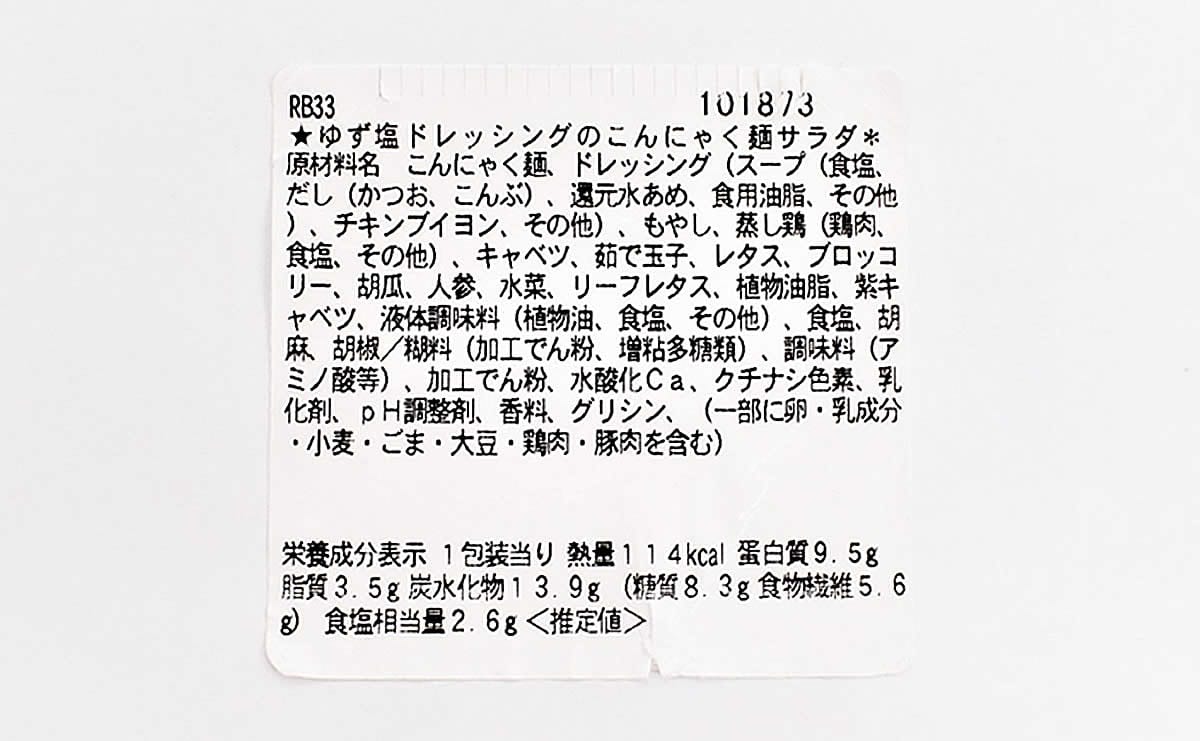 RB33 101873
★ゆず塩ドレッシングのこんにゃく麺サラダ＊
原材料名　こんにゃく麺、ドレッシング（スープ（食塩、
だし（かつお、こんぶ）、還元水あめ、食用油脂、その他
）、チキンブイヨン、その他）、もやし、蒸し鶏（鶏肉、
食塩、その他）、キャベツ、茹で玉子、レタス、ブロッコ
リー、胡瓜、人参、水菜、リーフレタス、植物油脂、紫キ
ャベツ、液体調味料（植物油、食塩、その他）、食塩、胡
麻、胡椒／糊料（加工でん粉、増粘多糖類）、調味料（ア
ミノ酸等）、加工でん粉、水酸化Ｃａ、クチナシ色素、乳
化剤、ｐＨ調整剤、香料、グリシン、（一部に卵・乳成分
・小麦・ごま・大豆・鶏肉・豚肉を含む）
栄養成分表示 １包装当り 熱量１１４kcal 蛋白質９.５g
脂質３.５g 炭水化物１３.９g （糖質８.３g 食物繊維５.６
g） 食塩相当量２.６g ＜推定値＞